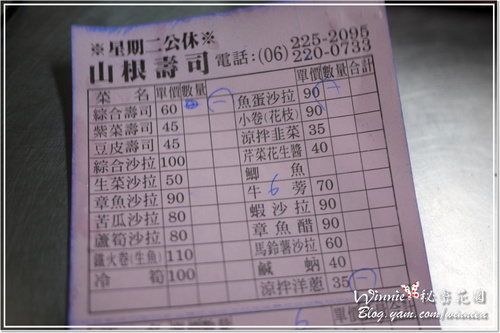 ※星期二公休※
山根壽司 電話:(06) 225-2095
220-0733
菜名 單價 數量 單價 數量 合計
綜合壽司 60 魚蛋沙拉 90
紫菜壽司 45 小卷(花枝) 90
豆皮壽司 45 涼拌韭菜 35
綜合沙拉 100 芹菜花生醬 40
生菜沙拉 50 鯽魚
章魚沙拉 90 牛蒡 70
苦瓜沙拉 80 蝦沙拉 90
蘆筍沙拉 80 章魚醋 90
鐵火卷(生魚) 110 馬鈴薯沙拉 60
冷筍 100 鹹蚋 40
涼拌洋蔥 35
Winnie 秘密花園
Blog.yam.com/winniea